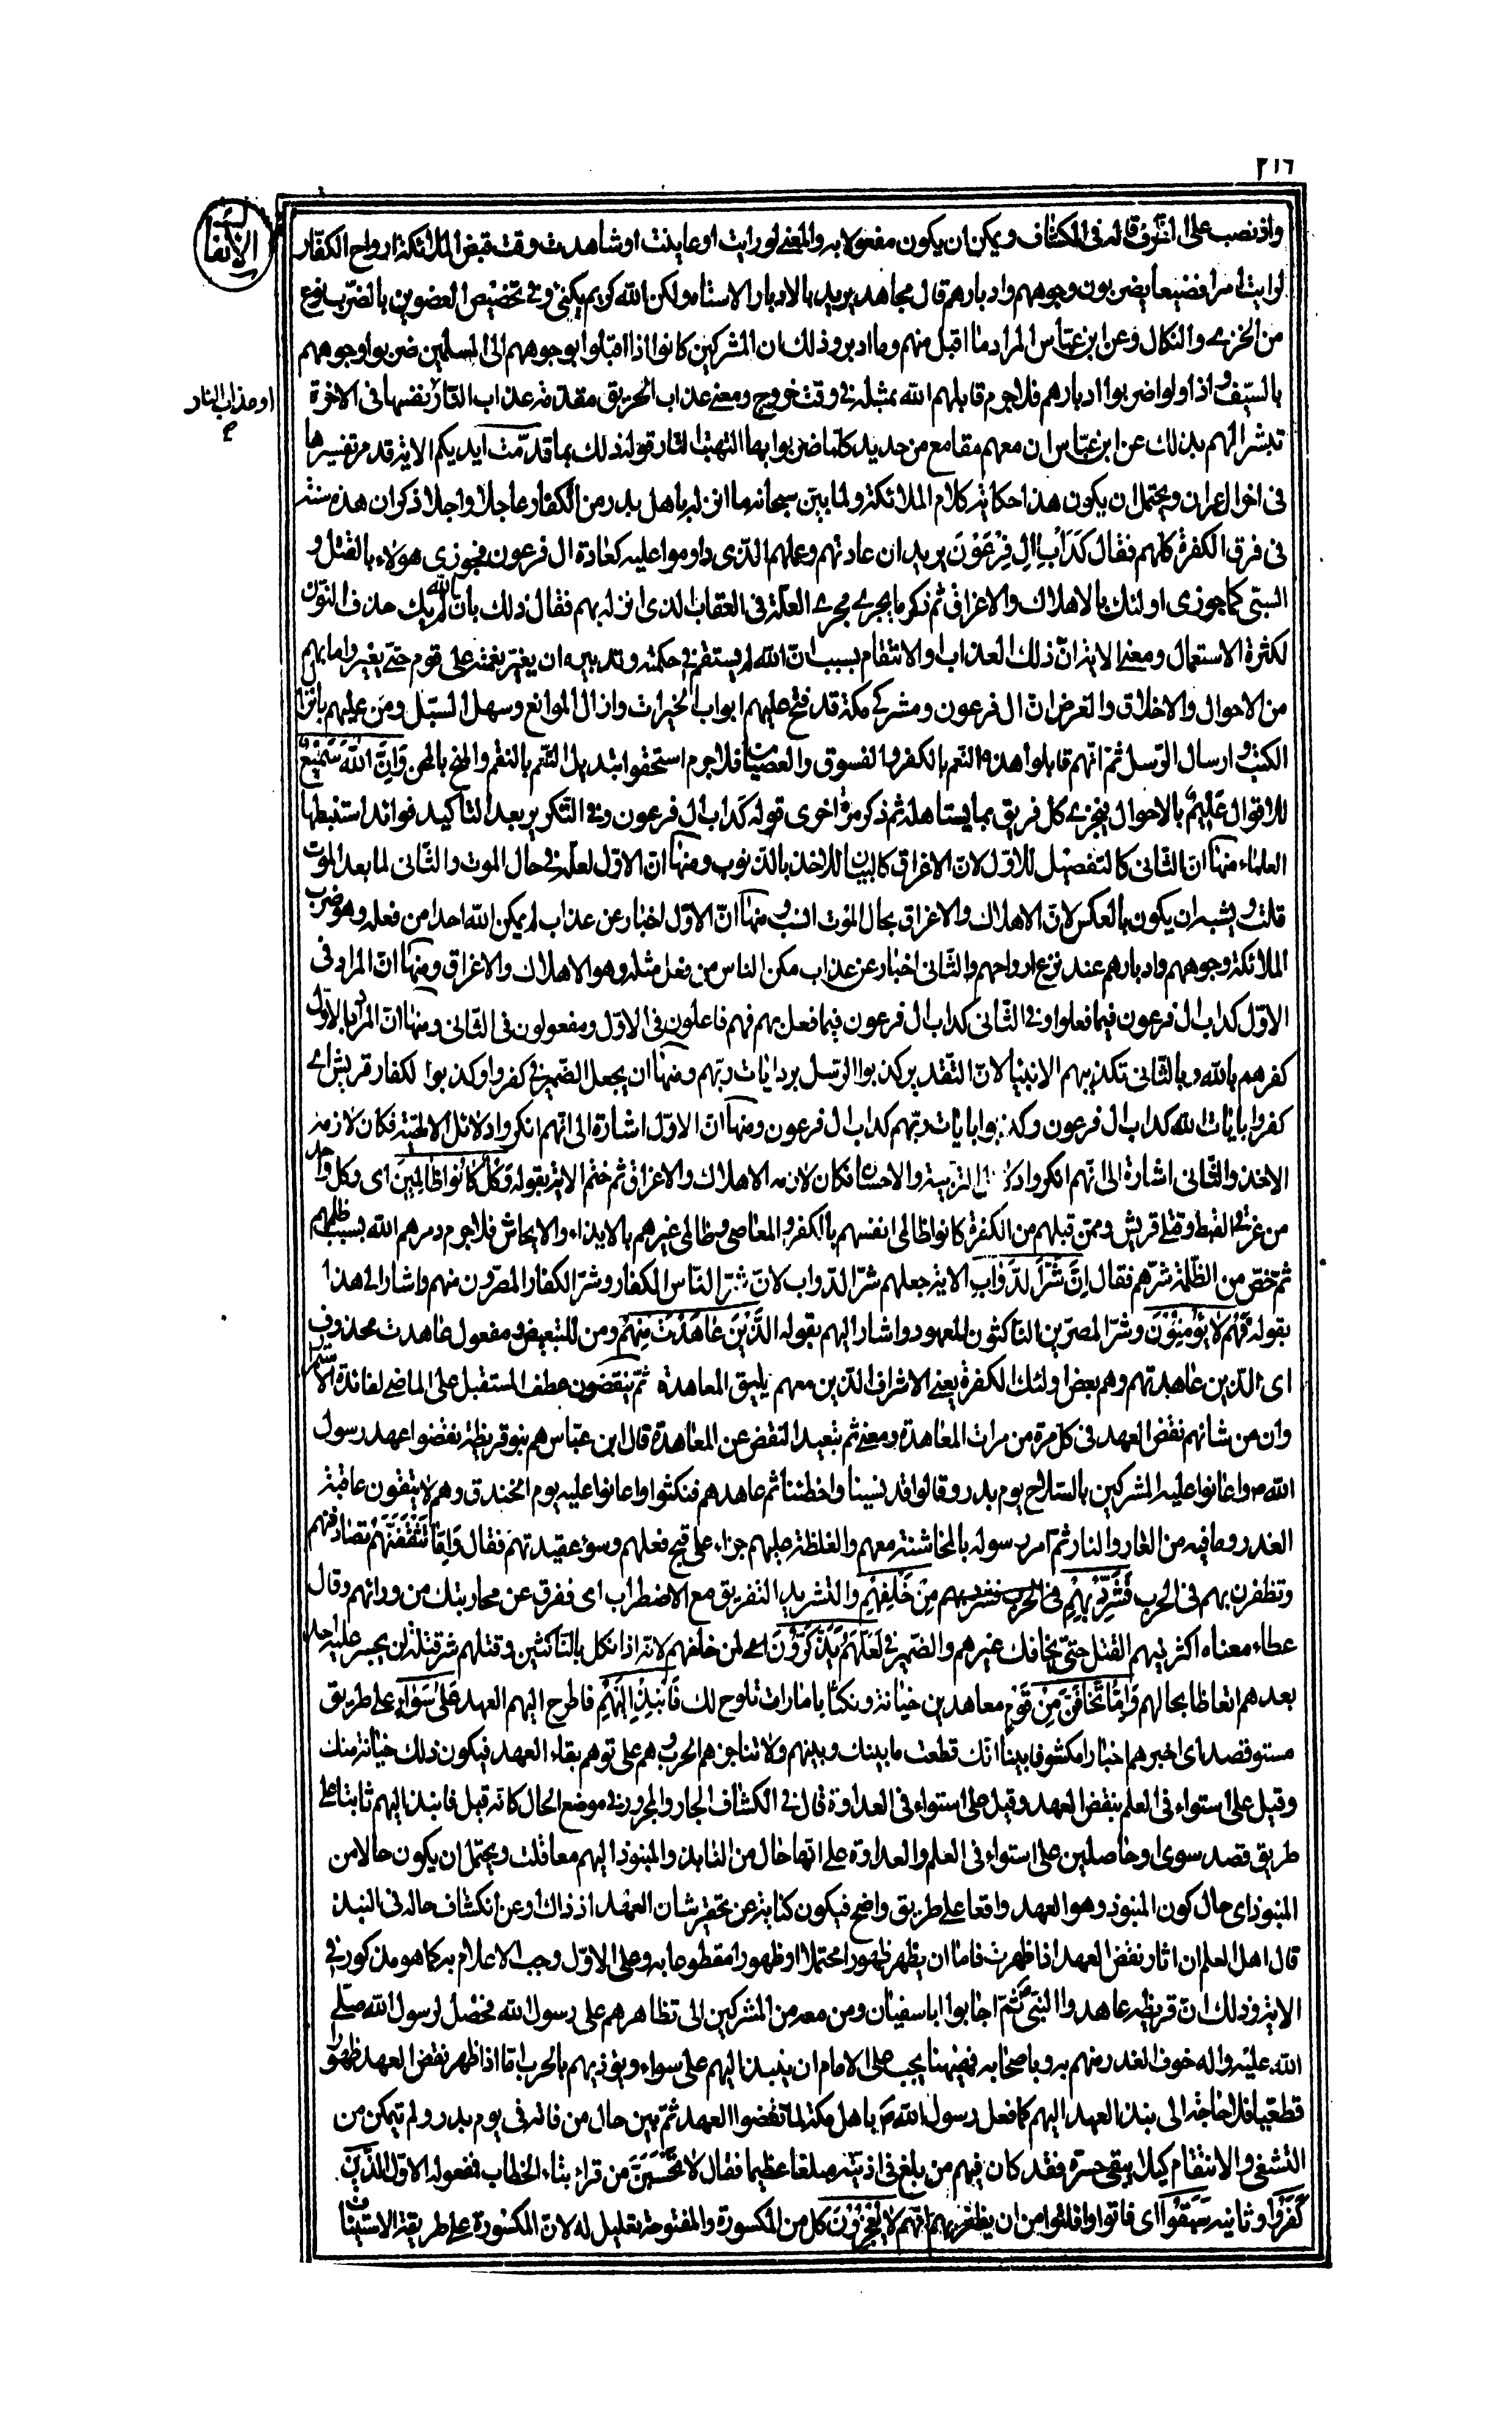 ٢١٦
الانفال
واذ نصب على الظرف قاله فى الكشاف ويمكن ان يكون مفعولا به والمعنى لو رايت او عاينت او شاهدت وقت قبض الملائكة ارواح الكفار
لرايت امرا فضيعا يضربون وجوههم وادبارهم قال مجاهد يريد بالادبار الاستاه ولكن الله كريم يكنى وفى تخصيص العضوين بالضرب نوع
من الخزى والنكال وعن ابن عباس المراد ما اقبل منهم وما ادبر وذلك ان المشركين كانوا اذا اقبلوا بوجوههم الى المسلمين ضربوا وجوههم
بالسيف و اذا ولوا ضربوا ادبارهم فلا جرم قابلهم الله بمثله فى وقت خروج ومعنى عذاب الحريق مقدمة عذاب النار نفسها فى الاخرة
او عذاب النار
تبشيرا لهم بذلك عن ابن عباس ان معهم مقامع من حديد كلما ضربوا بها التهبت النار قوله ذلك بما قدمت ايديكم الاية قد مر تفسيرها
فى اخر ال عمران ويحتمل ان يكون هذا حكاية كلام الملائكة ولما بين سبحانه ما انزله باهل بدر من الكفار عاجلا واجلا ذكر ان هذه سنته
فى فرق الكفرة كلهم فقال كَدَأْبِ الِ فِرْعَوْنَ يريد ان عادتهم وعملهم الذى داوموا عليه كعادة ال فرعون فجوزى هؤلاء بالقتل و
السبى كما جوزى اولئك بالاهلاك والاغراق ثم ذكر ما يجرى مجرى العلة فى العقاب الذى انزله بهم فقال ذلك بان الله لم يك حذف النون
لكثرة الاستعمال ومعنى الاية ان ذلك العذاب او الانتقام بسبب ان الله لم يستقم فى حكمته وتدبيره ان يغير نعمته على قوم حتى يغيروا ما بهم
من الاحوال والاخلاق والغرض ان ال فرعون ومشركى مكة قد فتح عليهم ابواب الخيرات وازال الموانع وسهل السبل ومن عليهم بانزال
الكتب و ارسال الرسل ثم انهم قابلوا هذه النعم بالكفر والفسوق والعصيان فلا جرم استحقوا تبديل النعم بالنقم والمنح بالمحن وَاِنَّ اللهَ سَمِيْعٌ
للاقوال عَلِيْمٌ بالاحوال فيجزى كل فريق بما يستاهله ثم ذكر مرة اخرى قوله كداب ال فرعون وفى التكرير بعد التاكيد فوائد استنبطها
العلماء منها ان الثانى كالتفصيل للاول لان الاغراق كالبيان للاخذ بالذنوب ومنها ان الاول لعله فى حال الموت والثانى لما بعد الموت
قلت و يشبه ان يكون بالعكس لان الاهلاك والاغراق بحال الموت انسب ومنها ان الاول اخبار عن عذاب لم يمكن الله احدا من فعله وهو ضرب
الملائكة وجوههم وادبارهم عند نزع ارواحهم والثانى اخبار عن عذاب مكن الناس من فعل مثله وهو الاهلاك والاغراق ومنها ان المراد فى
الاول كداب ال فرعون فيما فعلوا وفى الثانى كداب ال فرعون فيما فعل بهم فهم فاعلون فى الاول ومفعولون فى الثانى ومنها ان المراد بالاول
كفرهم بالله وبالثانى تكذيبهم الانبياء لان التقدير كذبوا الرسل برد ايات ربهم ومنها ان يجعل الضمير فى كفروا وكذبوا لكفار قريش اى
كفروا بايات الله كداب ال فرعون وكذبوا بايات ربهم كداب ال فرعون ومنها ان الاول اشارة الى انهم انكروا دلائل الالهية فكان لازمه
الاخذ والثانى اشارة الى انهم انكروا دلائل التربية والاحسان فكان لازمه الاهلاك والاغراق ثم ختم الاية بقوله وَكُلٌّ كَانُوا ظَالِمِيْنَ اى وكل واحد
من غرقى القبط وقتلى قريش وممن قبلهم من الكفرة كانوا ظالمى انفسهم بالكفر والمعاصى وظالمى غيرهم بالايذاء والايحاش فلا جرم دمرهم الله بسبب ظلمهم
ثم خص من الظلمة شرهم فقال اِنَّ شَرَّ الدَّوَابِّ الاية جعلهم شر الدواب لان شر الناس الكفار وشر الكفار المصرون منهم واشار الى هذا
بقوله فَهُمْ لَا يُؤْمِنُوْنَ وشر المصرين الناكثون للعهود واشار اليهم بقوله الَّذِيْنَ عَاهَدْتَ مِنْهُمْ ومن للتبعيض ومفعول عاهدت محذوف
اى الذين عاهدتهم وهم بعض اولئك الكفرة يعنى الاشراف الذين معهم يليق المعاهدة ثم ينقضون عطف المستقبل على الماضى لفائدة الاستمرار
وان من شانهم نقض العهد فى كل مرة من مرات المعاهدة ومعنى ثم تبعيد النقض عن المعاهدة قال ابن عباس هم بنو قريظة نقضوا عهد رسول
الله ص واعانوا عليه المشركين بالسلاح يوم بدر وقالوا قد نسينا واخطئنا ثم عاهدهم فنكثوا واعانوا عليه يوم الخندق وهم لا يتقون عاقبة
الغدر وما فيه من العار والنار ثم امر رسوله بالمخاشنة معهم والغلظة عليهم جزاء على قبح فعلهم وسوء عقيدتهم فقال فَاِمَّا تَثْقَفَنَّهُمْ تصادفنهم
وتظفرن بهم فى الحرب فَشَرِّدْ بِهِمْ فى الحرب فشرد بهم مِنْ خَلْفِهِمْ والتشريد التفريق مع الاضطراب اى ففرق عن محاربتك من ورائهم وقال
عطاء معناه اكثر فيهم القتل حتى يخافك غيرهم والضمير فى لَعَلَّهُمْ يَذَّكَّرُوْنَ اى لمن خلفهم لانه اذا نكل بالناكثين وقتلهم شر قتلة لن يجسر عليه احد
بعدهم اتعاظا بحالهم وَاِمَّا تَخَافَنَّ مِنْ قَوْمٍ معاهدين خيانة ونكثا بامارات تلوح لك فَانْبِذْ اِلَيْهِمْ فاطرح اليهم العهد عَلٰى سَوَاءٍ على طريق
مستو قصد اى اخبرهم اخبارا مكشوفا بينا انك قطعت ما بينك وبينهم ولا تناجزهم الحرب و هم على توهم بقاء العهد فيكون ذلك خيانة منك
وقيل على استواء فى العلم بنقض العهد وقيل على استواء فى العداوة قال فى الكشاف الجار والمجرور فى موضع الحال كانه قيل فانبذ اليهم ثابتا على
طريق قصد سوى او حاصلين على استواء فى العلم والعداوة على انها حال من النابذ والمنبوذ اليهم معا قلت ويحتمل ان يكون حالا من
المنبوذ اى حال كون المنبوذ وهو العهد واقعا على طريق واضح فيكون كناية عن تحقير شان العهد اذ ذاك وعن انكشاف حاله فى النبذ
قال اهل العلم ان اثار نقض العهد اذا ظهرت فاما ان يظهر ظهورا محتملا او ظهورا مقطوعا به وعلى الاول وجب الاعلام به كما هو مذكور فى
الاية وذلك ان قريظة عاهدوا النبى ص ثم اجابوا ابا سفيان ومن معه من المشركين الى تظاهرهم على رسول الله فحصل لرسول الله صلى
الله عليه واله خوف الغدر منهم به وباصحابه فههنا يجب على الامام ان ينبذ اليهم على سواء ويؤذنهم بالحرب اما اذا ظهر نقض العهد ظهورا
قطعيا فلا حاجة الى نبذ العهد اليهم كما فعل رسول الله ص باهل مكة لما نقضوا العهد ثم بين حال من فاته فى يوم بدر ولم يتمكن من
التشفى والانتقام كيلا يبقى حسرة فقد كان فيهم من بلغ فى اذيته مبلغا عظيما فقال لا تَحْسَبَنَّ من قراء بتاء الخطاب فمفعوله الاول الَّذِيْنَ
كَفَرُوْا وثانيه سَبَقُوْا اى فاتوا وافلتوا من ان يظفر بهم انهم لَا يُعْجِزُوْنَ كل من المكسورة والمفتوحة تعليل له لان المكسورة على طريقة الاستيناف